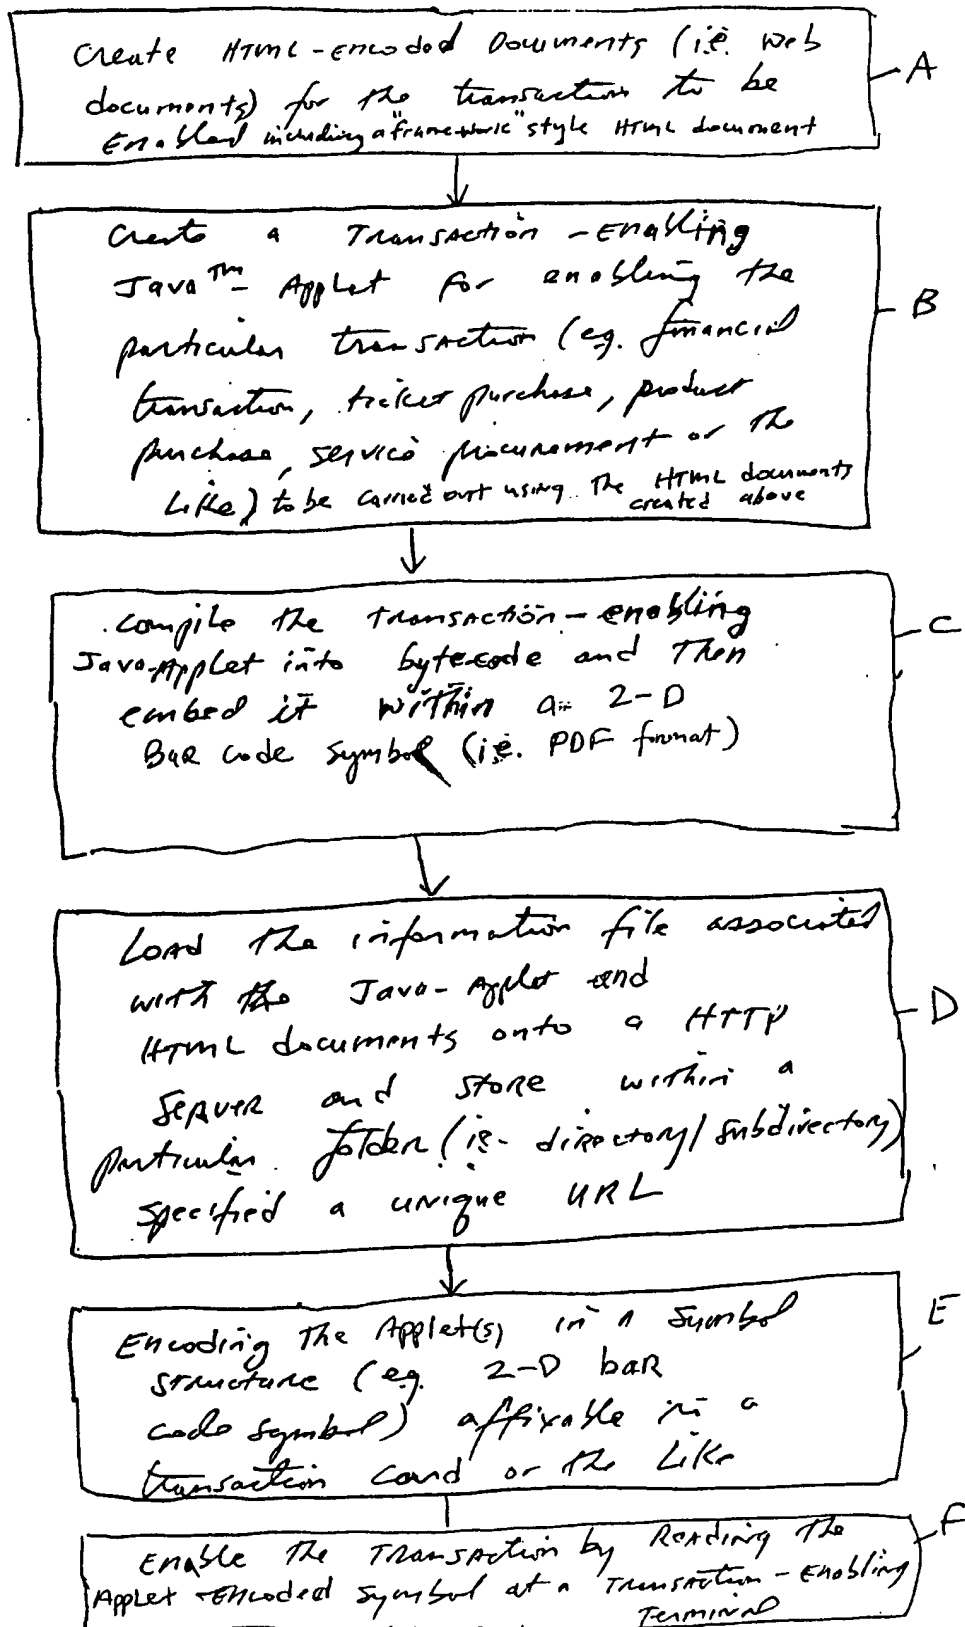 Create HTML-encoded Documents (i.e. web
documents) for the transaction to be
Enabled including a "framework" style HTML document
A
Create a Transaction-Enabling
Java™-Applet for enabling the
particular transaction (e.g. financial
transaction, ticket purchase, product
purchase, service procurement or the
Like) to be carried out using the HTML documents
created above
B
Compile the Transaction-enabling
Java-Applet into bytecode and Then
embed it within a 2-D
Bar code symbol (i.e. PDF format)
C
Load the information file associated
with the Java-Applet and
HTML documents onto a HTTP
Server and store within a
particular folder (ie. directory/subdirectory)
specified a unique URL
D
Encoding The Applet(s) in a Symbol
structure (e.g. 2-D bar
code symbol) affixable in a
transaction card or the Like
E
Enable the Transaction by Reading The
Applet-Encoded symbol at a Transaction-Enabling
Terminal
F